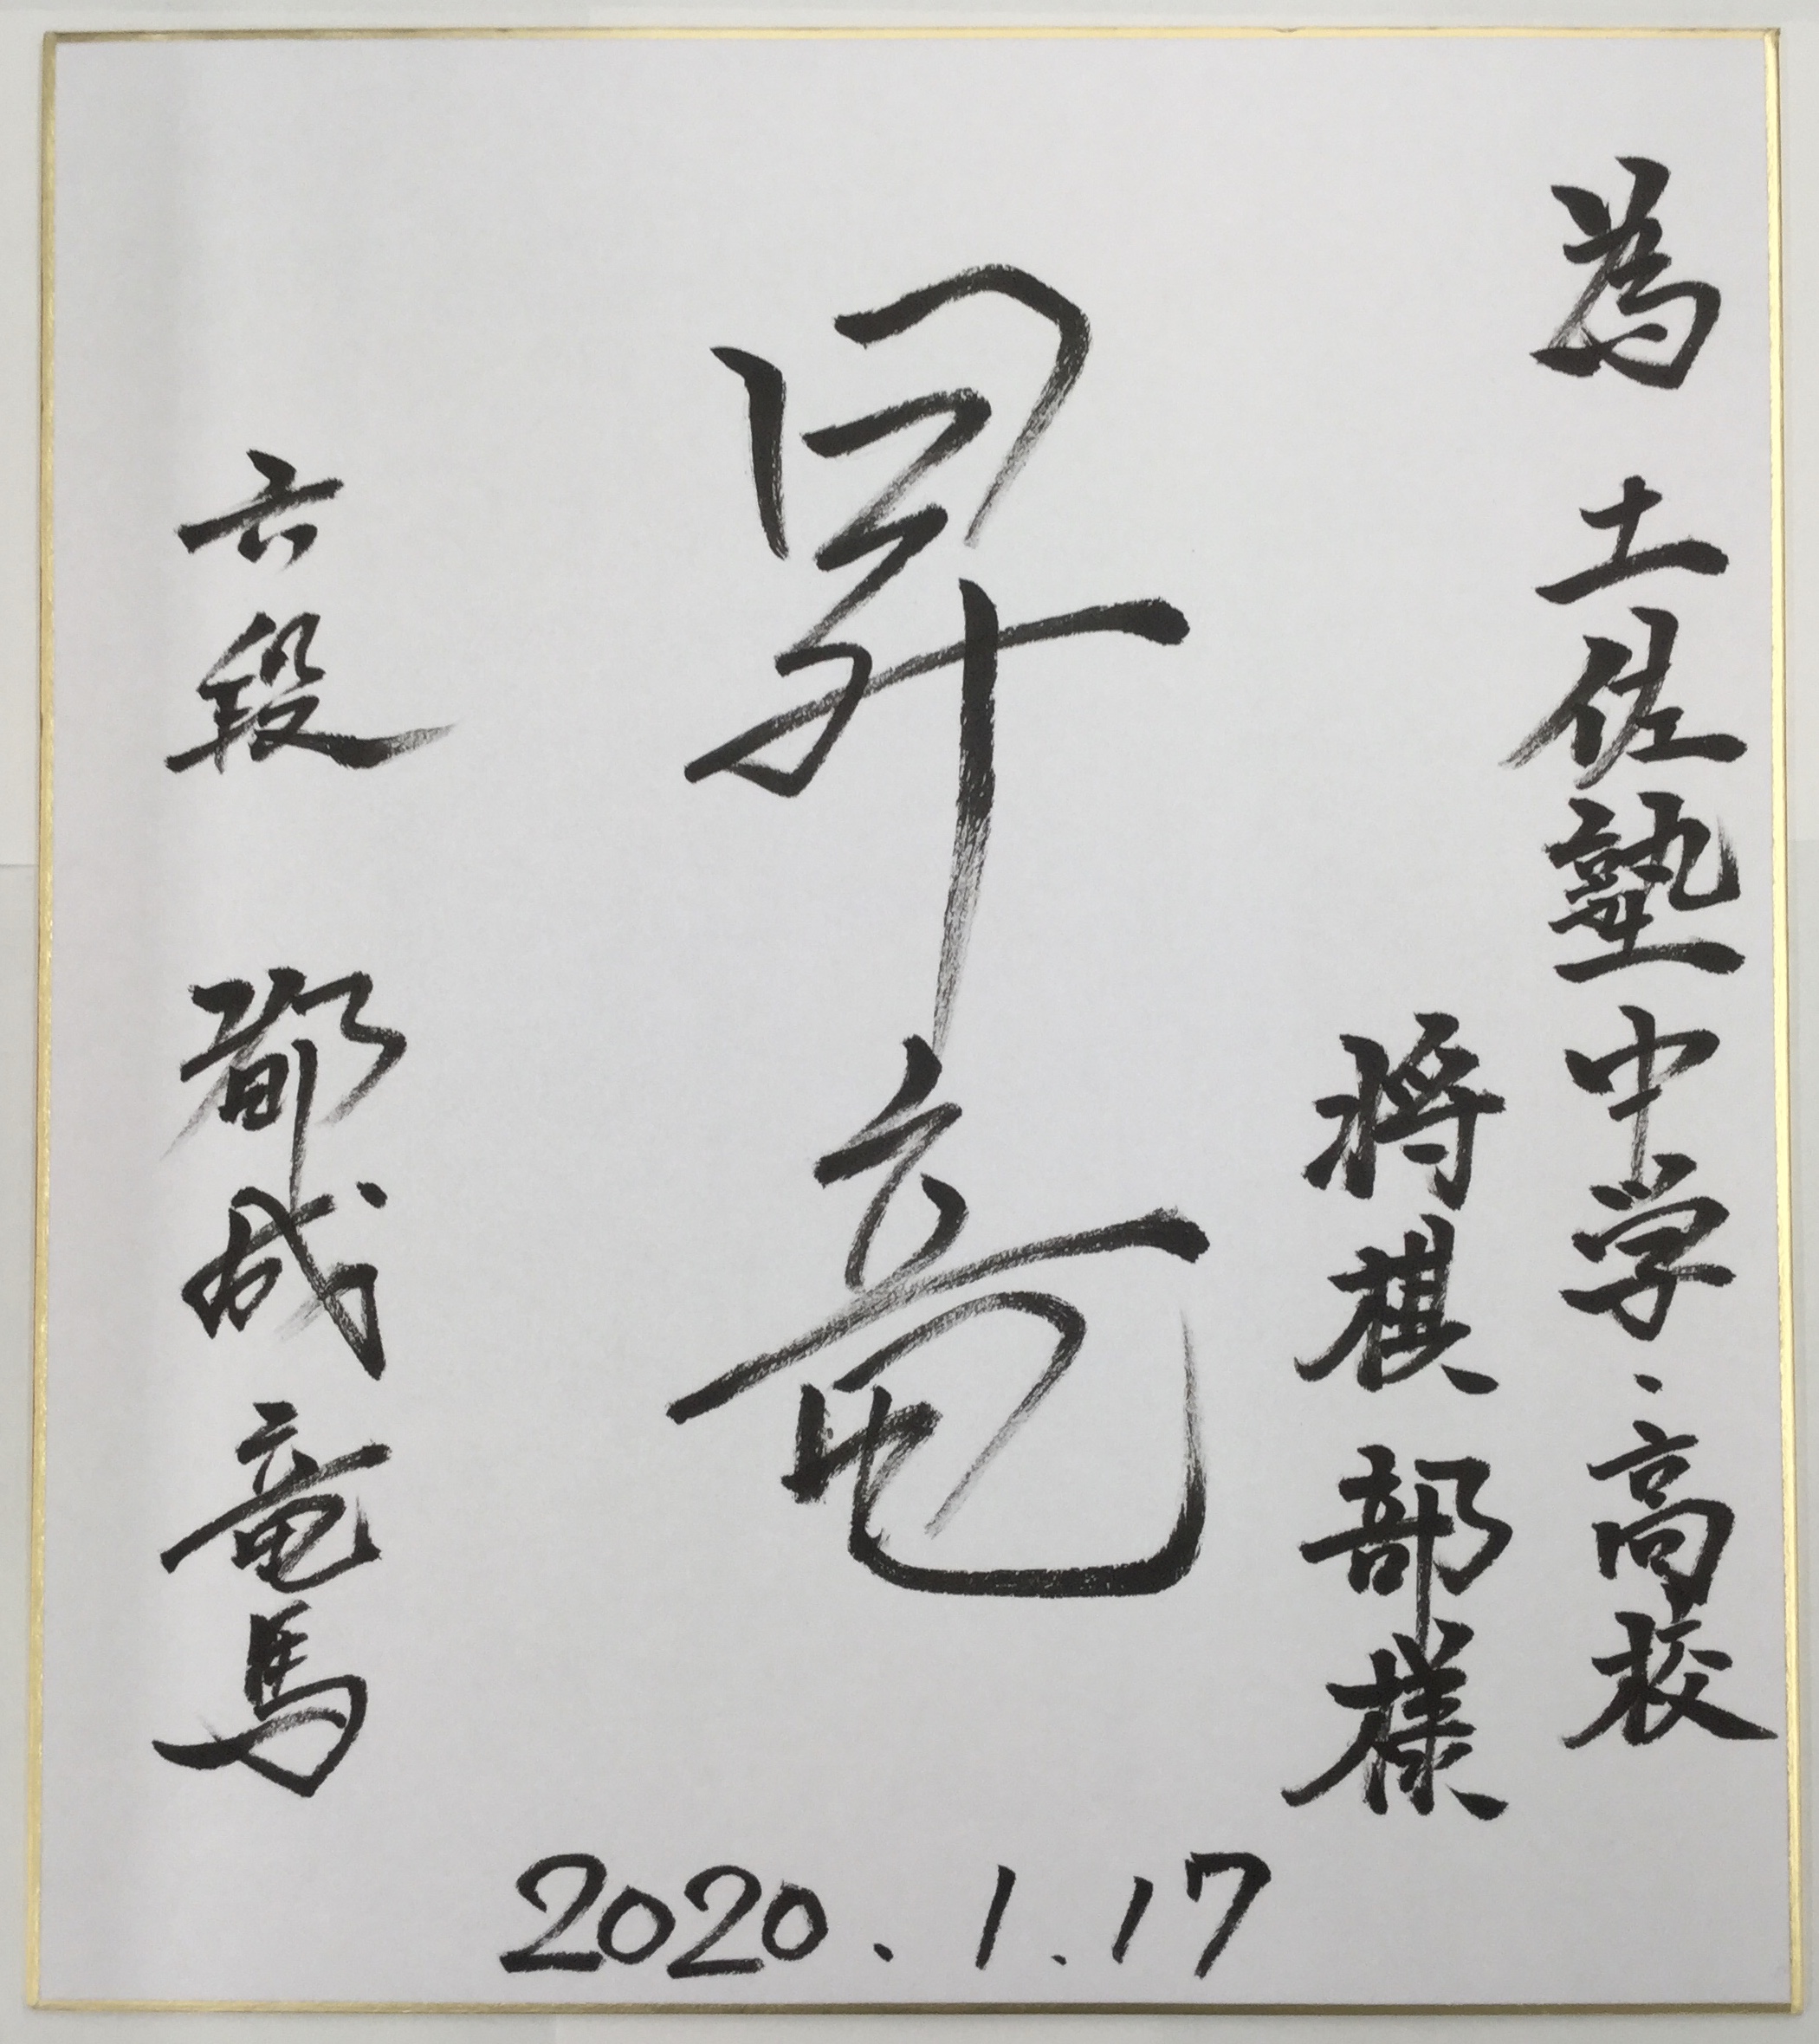 為 土佐塾中学・高校
将棋部様
昇竜
六段 都成竜馬
2020.1.17